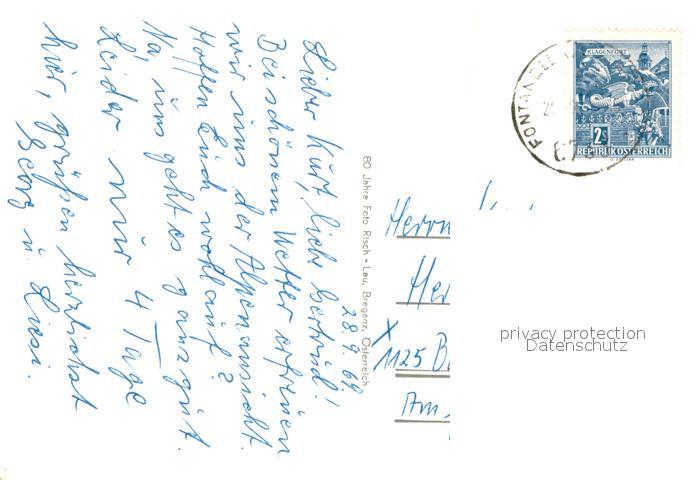 28.9.69
Lieber Kurt, liebe Gertrud!
Bei schönem Wetter erfreuen
wir uns der Alpenansicht.
Hoffen Euch wohlauf?
Na, uns geht es ganz gut.
Leider nur 4 Tage
hier, grüßen herzlichst
Georg u. Liesi.
80 Jahre Foto Risch-Lau, Bregenz, Österreich
KLAGENFURT
2S
REPUBLIK ÖSTERREICH
FONTANELLA
Herrn
1125 B
Am
privacy protection
Datenschutz